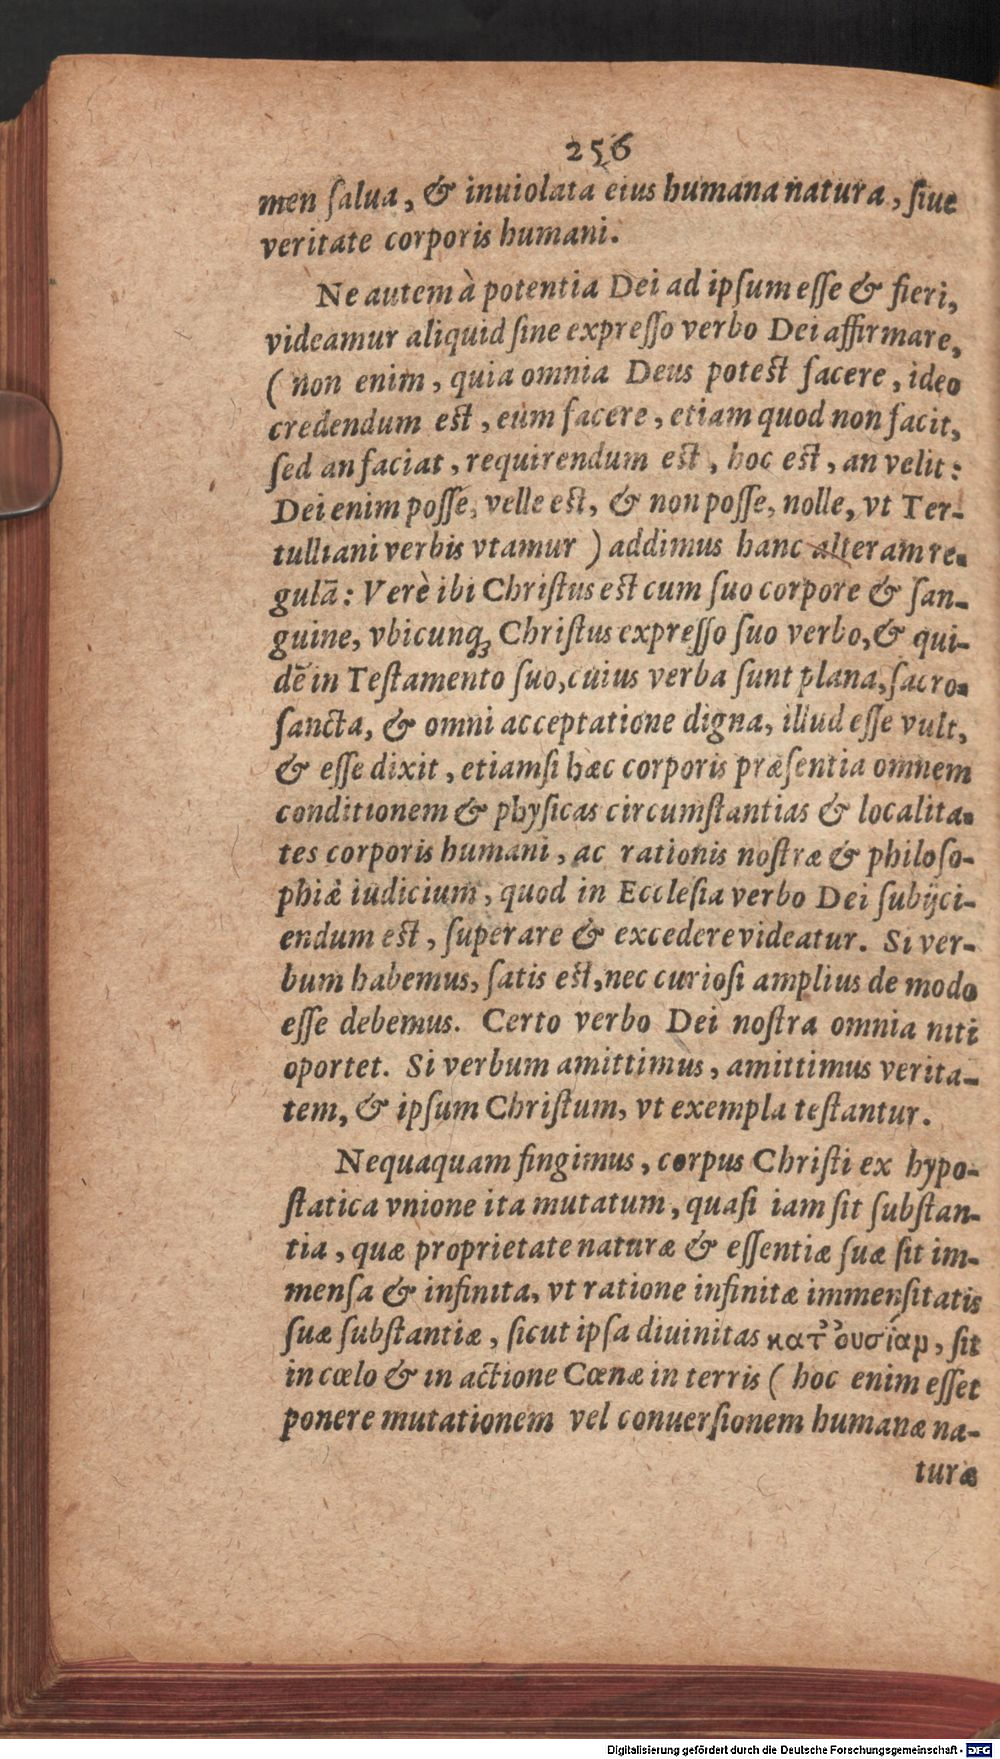 256
men ſalua, & inuiolata eius humana natura, ſiue
veritate corporis humani.
Ne autem à potentia Dei ad ipſum eſſe & fieri,
videamur aliquid ſine expreſſo verbo Dei affirmare,
( non enim, quia omnia Deus poteſt facere, ideo
credendum eſt, eum facere, etiam quod non facit,
ſed an faciat, requirendum eſt, hoc eſt, an velit:
Dei enim poſſe, velle eſt, & non poſſe, nolle, vt Ter-
tulliani verbis vtamur ) addimus hanc alteram re-
gulā: Verè ibi Chriſtus eſt cum ſuo corpore & ſan-
guine, vbicunq; Chriſtus expreſſo ſuo verbo, & qui-
dē in Teſtamento ſuo, cuius verba ſunt plana, ſacro-
ſancta, & omni acceptatione digna, illud eſſe vult,
& eſſe dixit, etiamſi hæc corporis præſentia omnem
conditionem & phyſicas circumſtantias & localita-
tes corporis humani, ac rationis noſtræ & philoſo-
phiæ iudicium, quod in Eccleſia verbo Dei ſubijci-
endum eſt, ſuperare & excedere videatur. Si ver-
bum habemus, ſatis eſt, nec curioſi amplius de modo
eſſe debemus. Certo verbo Dei noſtra omnia niti
oportet. Si verbum amittimus, amittimus verita-
tem, & ipſum Chriſtum, vt exempla teſtantur.
Nequaquam fingimus, corpus Chriſti ex hypo-
ſtatica vnione ita mutatum, quaſi iam ſit ſubſtan-
tia, quæ proprietate naturæ & eſſentiæ ſuæ ſit im-
menſa & infinita, vt ratione infinitæ immenſitatis
ſuæ ſubſtantiæ, ſicut ipſa diuinitas κατ᾽ οὐσίαν, ſit
in cœlo & in actione Cœnæ in terris ( hoc enim eſſet
ponere mutationem vel conuerſionem humanæ na-
turæ
Digitalisierung gefördert durch die Deutsche Forschungsgemeinschaft - DFG